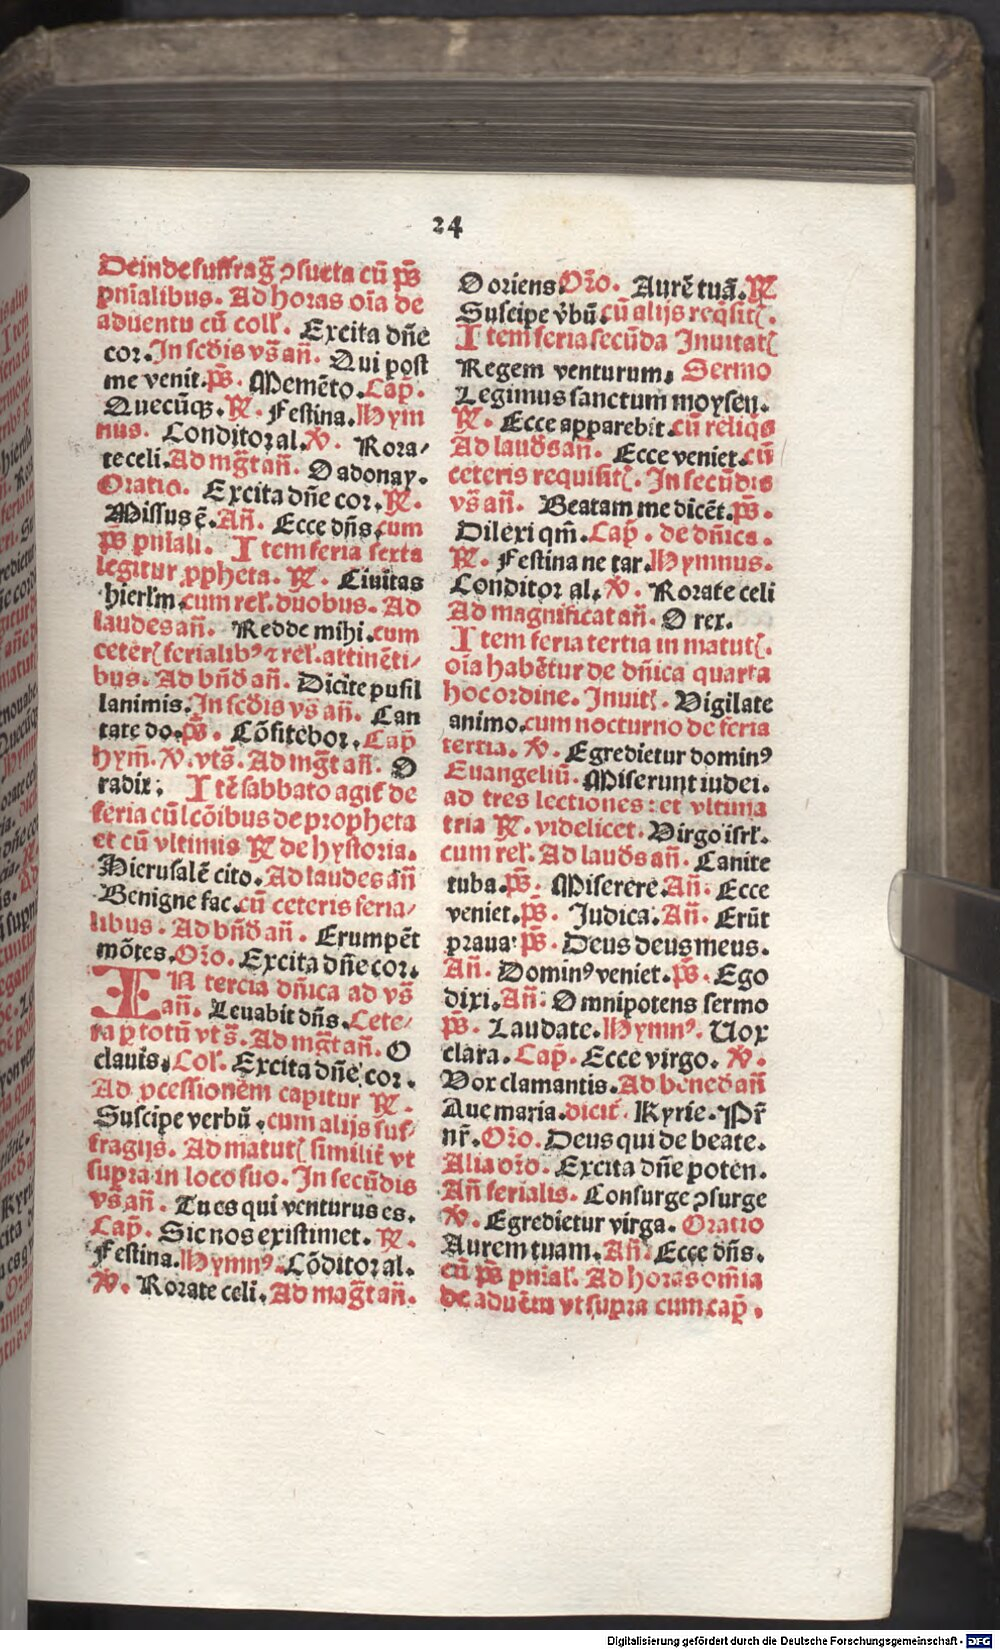 24
Deinde suffrag̃ ꝯsueta cũ ps̃
pnĩalibus. Ad horas oĩa de
aduentu cũ coll'. Excita dñe
cor. In scd̃is vs̃ añ. Qui post
me venit. ps̃. Memẽto. Cap̃.
Quecũqꝫ. ℟. Festina. Hym
nus. Conditor al. ℣. Rora/
te celi. Ad mg̃t añ. O adonay.
Oratio. Excita dñe cor. ℟.
Missus ẽ. Añ. Ecce dñs. cum
ps̃ pnĩali. Item feria sexta
legitur ꝓpheta. ℟. Ciuitas
hierl'm. cum rel'. duobus. Ad
laudes añ. Redde mihi. cum
ceter̃ ferialibꝰ ⁊ rel'. attinẽti/
bus. Ad bñd̃ añ. Dicite pusil
lanimis. In scd̃is vs̃ añ. Can
tate do. ps̃. Cõfitebor. Cap̃
hym̃. ℣. vts̃. Ad mg̃t añ. O
radix; Itẽ sabbato agit̃ de
feria cũ lcõibus de propheta
et cũ vltimis ℟ de hystoria.
Hierusalẽ cito. Ad laudes añ
Benigne fac. cũ ceteris feria/
libus. Ad bñd̃ añ. Erumpẽt
mõtes. Orõ. Excita dñe cor.
IN tercia dñica ad vs̃
añ. Leuabit dñs. Cete/
ra ꝑ totũ vts̃. Ad mg̃t añ. O
clauis. Col'. Excita dñe cor.
Ad ꝓcessionem capitur ℟.
Suscipe verbũ. cum alijs suf/
fragijs. Ad matut̃ similit̃ vt
supra in loco suo. In secũdis
vs̃ añ. Tu es qui venturus es.
Cap̃. Sic nos existimet. ℟.
Festina. Hymnꝰ. Cõditor al.
℣. Rorate celi. Ad mag̃t añ.
O oriens. Orõ. Aurẽ tuã. ℟
Suscipe v̾bũ. cũ alijs reqsit̃.
Item feria secũda Inuitat̃
Regem venturum. Sermo
Legimus sanctum moysen.
℟. Ecce apparebit. cũ reliqs
Ad laud̃s añ. Ecce veniet. cũ
ceteris requisit̃. In secũdis
vs̃ añ. Beatam me dicẽt. ps̃.
Dilexi qm̃. Cap̃. de dñica.
℟. Festina ne tar. Hymnus.
Conditor al. ℣. Rorate celi
Ad magnificat añ. O rex.
Item feria tertia in matut̃.
oĩa habẽtur de dñica quarta
hoc ordine. Inuit̃. Vigilate
animo. cum nocturno de feria
tertia. ℣. Egredietur dominꝰ
Euangeliũ. Miserunt iudei.
ad tres lectiones: et vltima
tria ℟. videlicet. Virgo isrl'.
cum rel'. Ad laud̃s añ. Canite
tuba. ps̃. Miserere. Añ. Ecce
veniet. ps̃. Judica. Añ. Erũt
praua: ps̃. Deus deus meus.
Añ. Dominꝰ veniet. ps̃. Ego
dixi. Añ. Omnipotens sermo
ps̃. Laudate. Hymnꝰ. Uox
clara. Cap̃. Ecce virgo. ℣.
Vox clamantis. Ad bened añ
Aue maria. dicit̃. Kyrie. Pr̃
nr̃. Orõ. Deus qui de beate.
Alia orõ. Excita dñe poten.
Añ ferialis. Consurge ꝯsurge
℣. Egredietur virga. Oratio
Aurem tuam. Añ. Ecce dñs.
cũ ps̃ pnĩal'. Ad horas om̃ia
de aduẽtu vt supra cum cap̃.
Digitalisierung gefördert durch die Deutsche Forschungsgemeinschaft - DFG